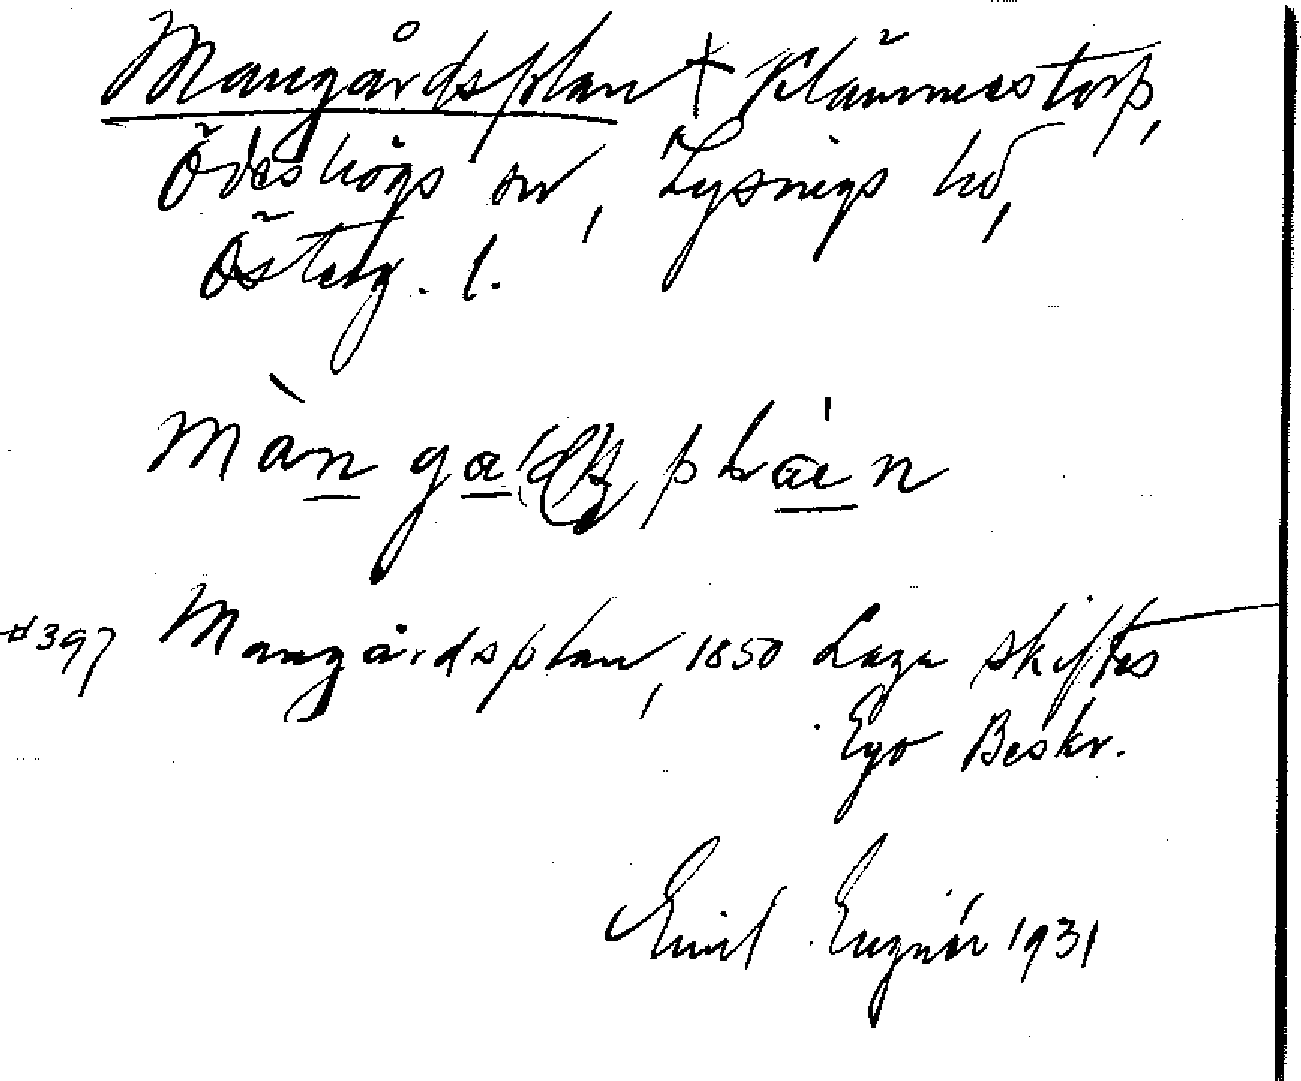 Mangårdsplan + Klämmestorp,
Ödeshögs sn, Lysings hd,
Österg. l.
#397 Mangårdsplan, 1850 Laga skiftes
Ego Beskr.
Emil 1931